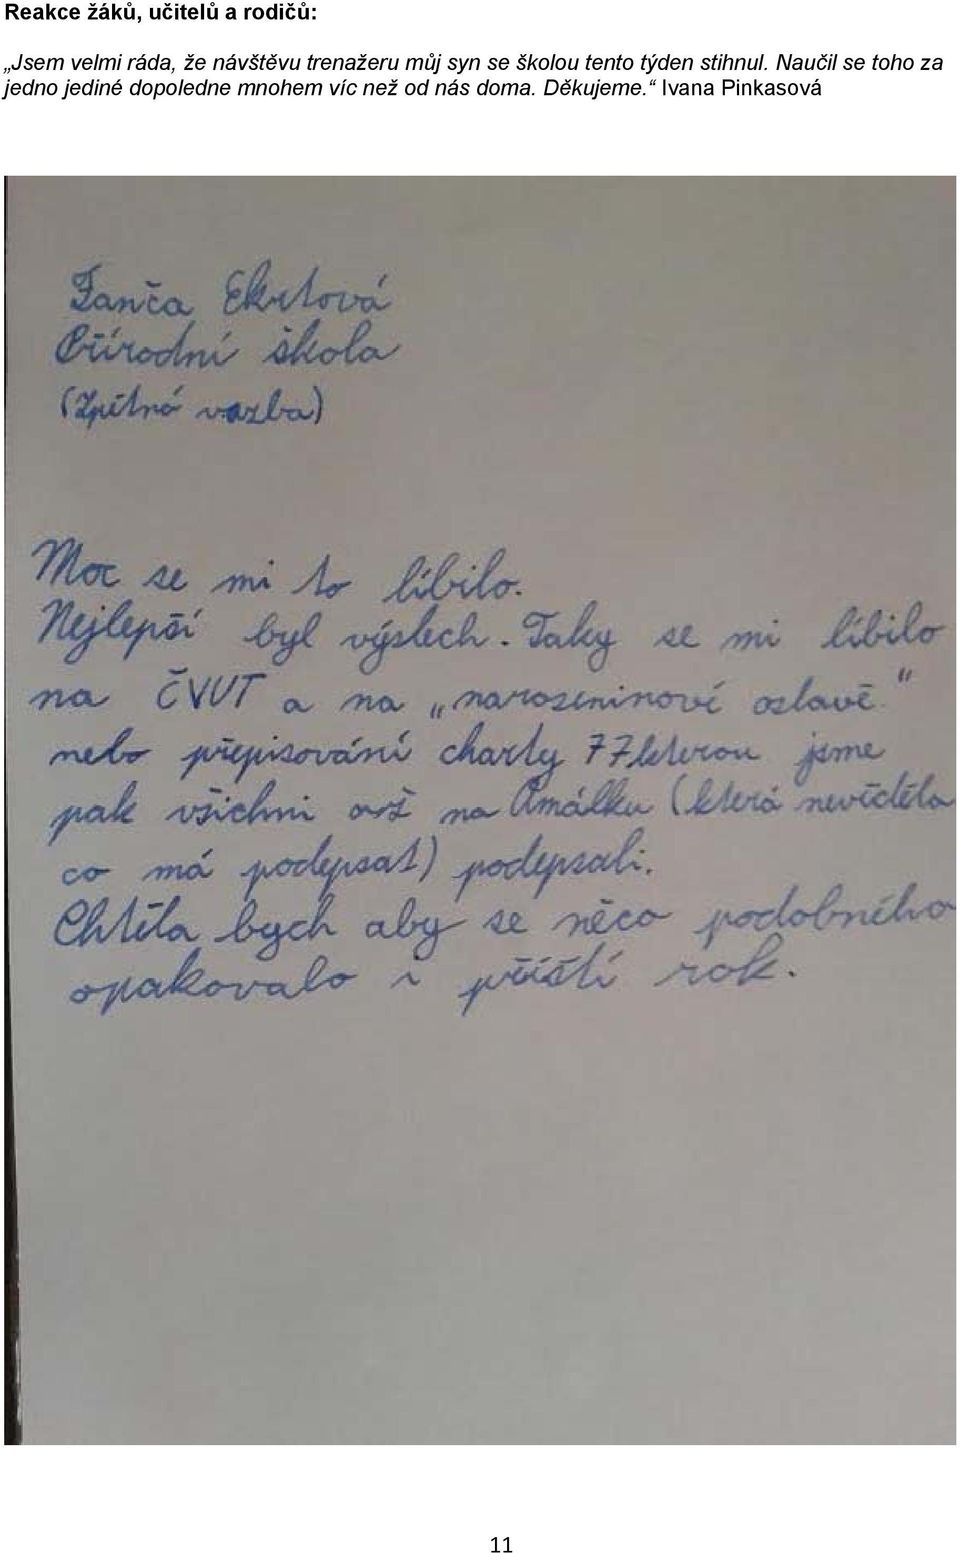 Reakce žáků, učitelů a rodičů:
„Jsem velmi ráda, že návštěvu trenažeru můj syn se školou tento týden stihnul. Naučil se toho za
jedno jediné dopoledne mnohem víc než od nás doma. Děkujeme.“ Ivana Pinkasová
Tanča Ekrtová
Přírodní škola
(Zpětná vazba)
Moc se mi to líbilo.
Nejlepší byl výslech. Taky se mi líbilo
na ČVUT a na „narozeninové oslavě“
nebo přepisování charty 77 kterou jsme
pak všichni až na Amálku (která nevěděla
co má podepsat) podepsali.
Chtěla bych aby se něco podobného
opakovalo i příští rok.
11